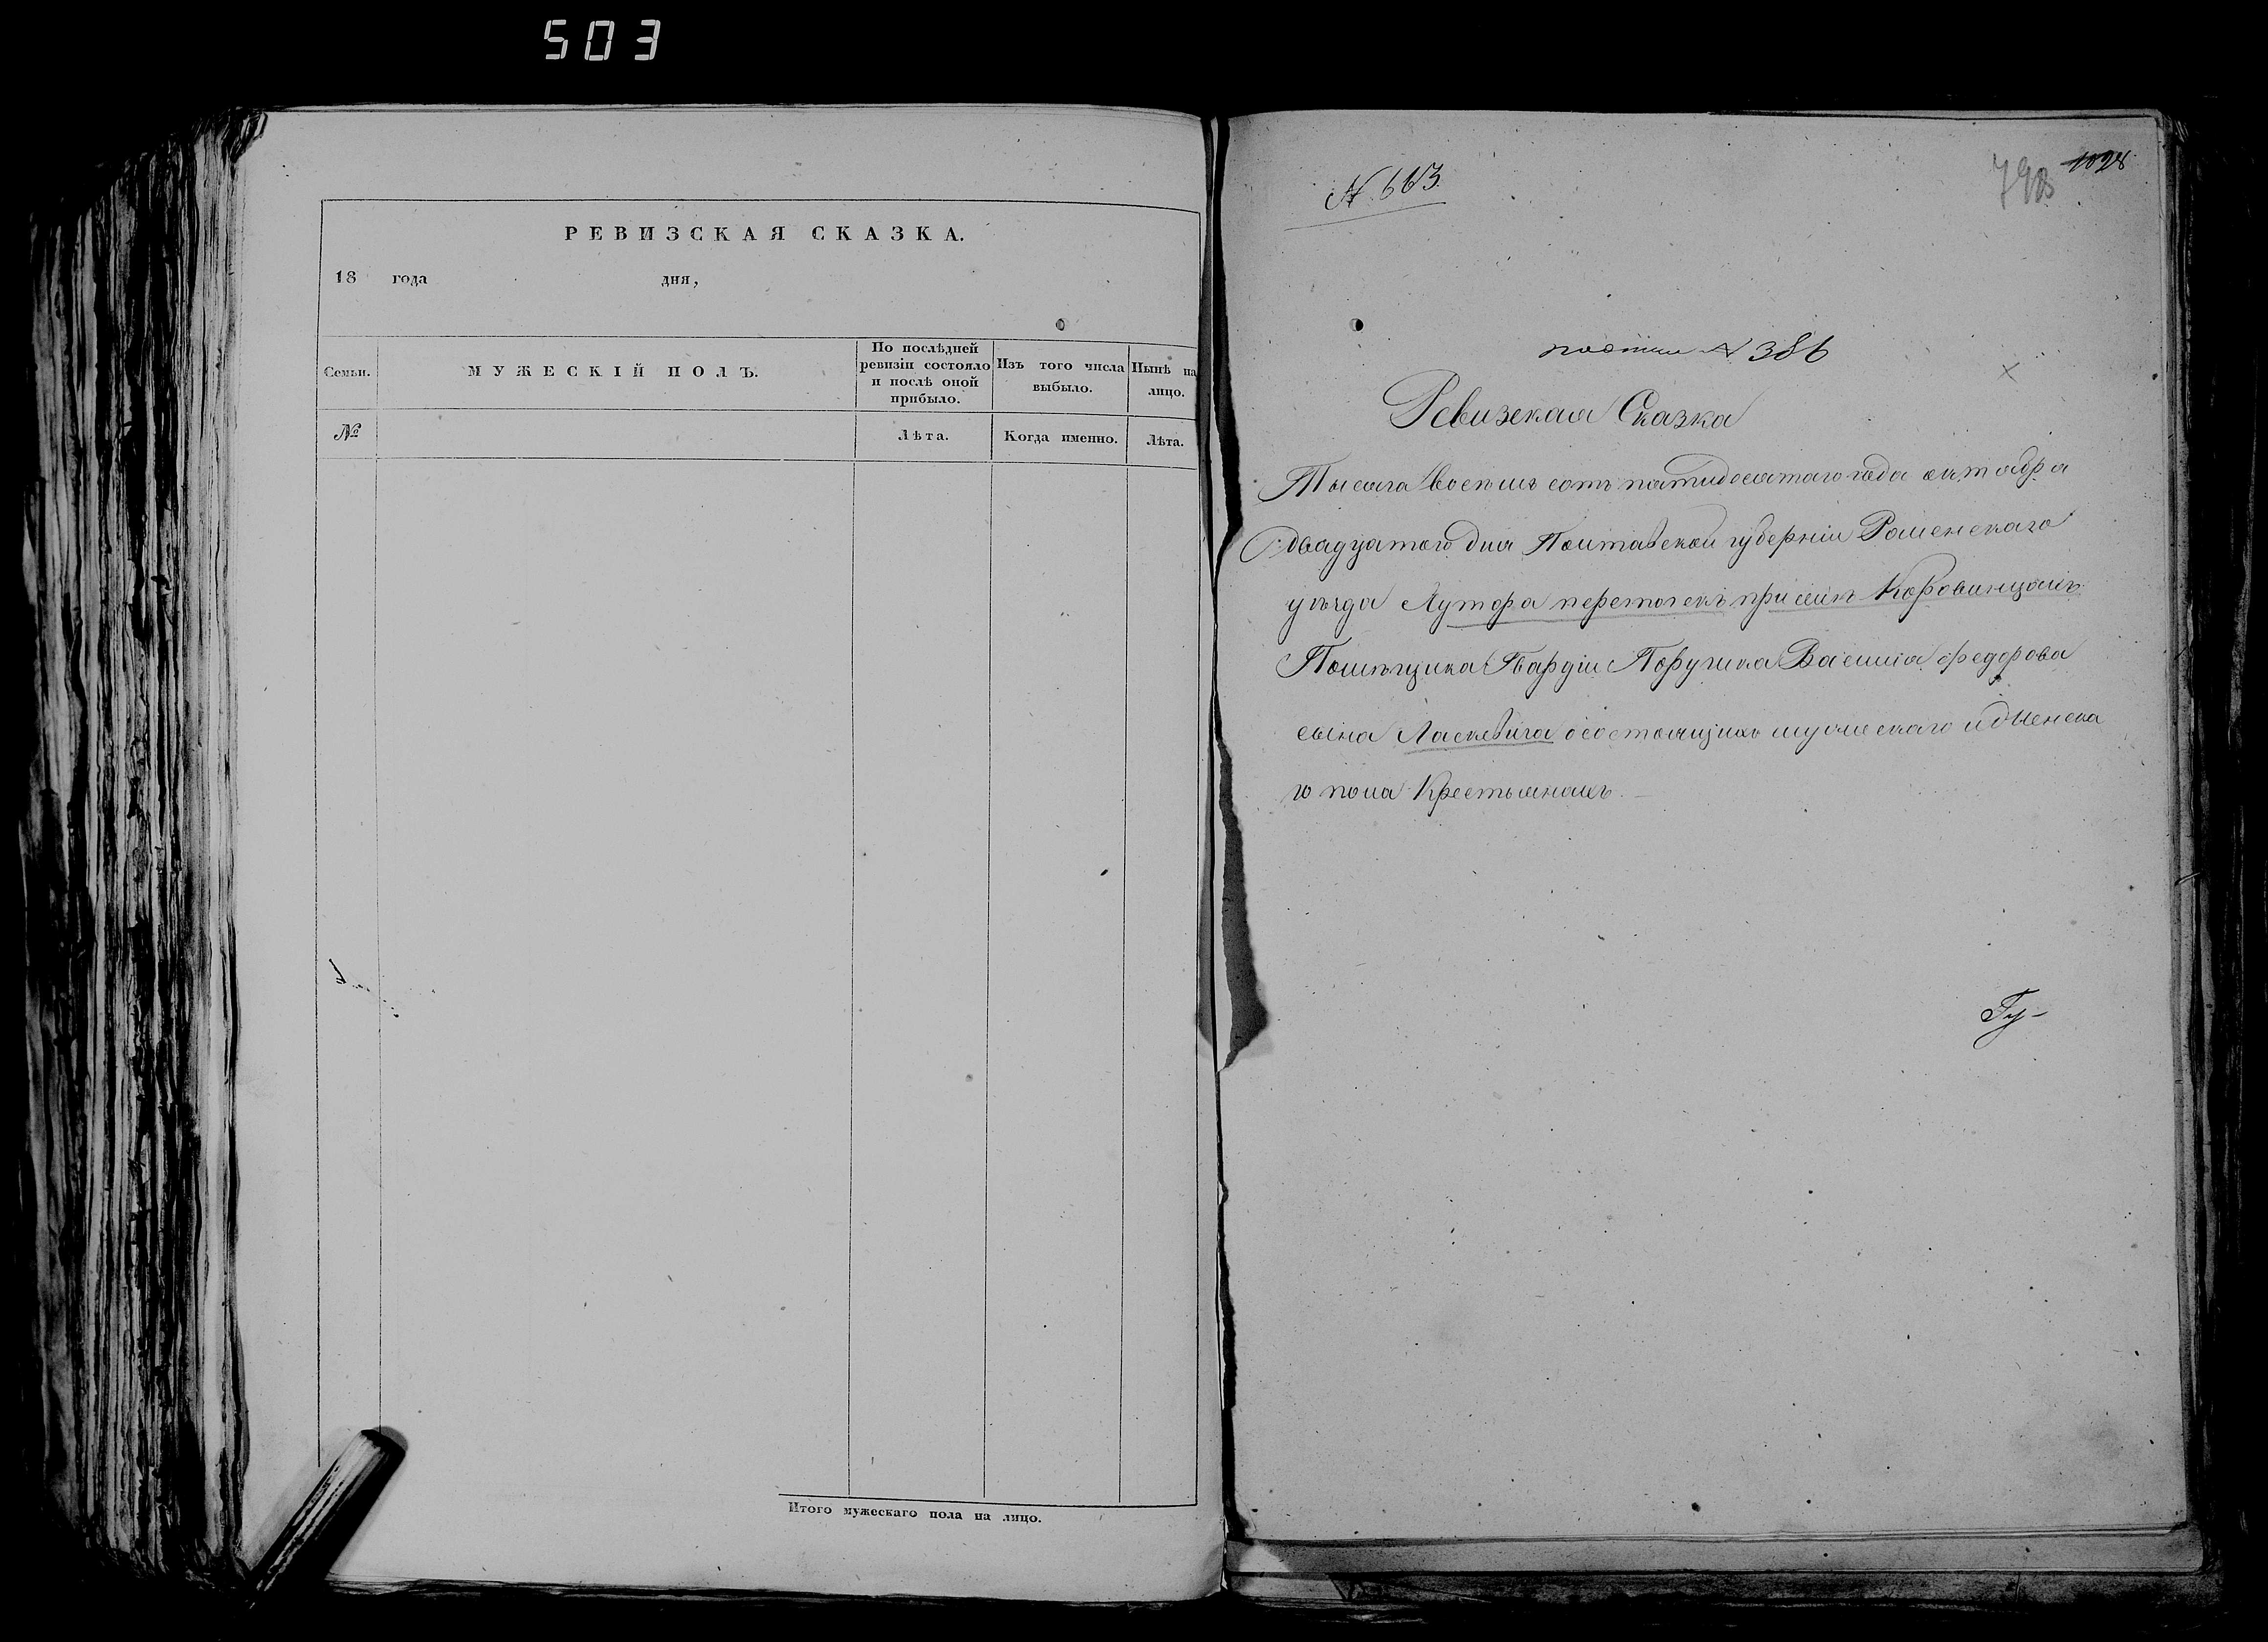 503
РЕВИЗСКАЯ СКАЗКА.
18 года дня,
Семьи.
МУЖЕСКІЙ ПОЛЪ.
По послѣдней ревизіи состояло и послѣ оной прибыло.
Изъ того числа выбыло.
Нынѣ на лицо.
№
Лѣта.
Когда именно.
Лѣта.
Итого мужескаго пола на лицо.
N 663
1028
793
N 386
Ревизская Сказка
Тысяча восемь сотъ пятидесятаго года октября
двадцатого дня Полтавской губерніи Роменскаго
уѣзда Хутора переточекъ при селѣ Коровинцахъ
Помѣщика Гвардіи Поручика Василія Федорова
сына Ласкевича о состоящихъ мужескаго и Женска
го пола Крестьянахъ.
Гу-